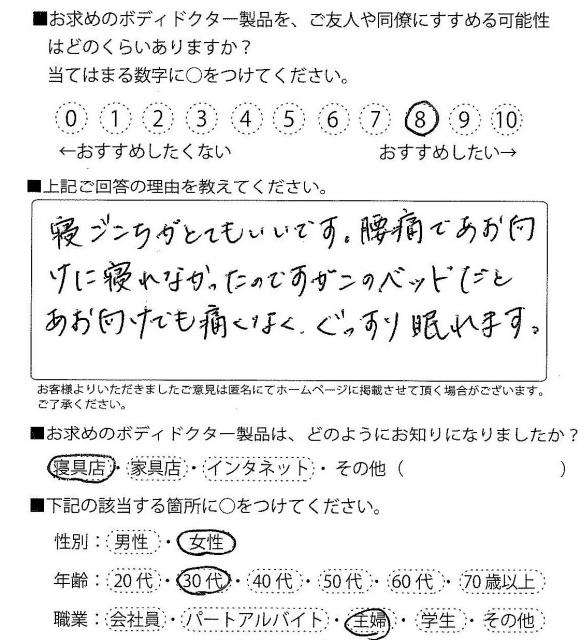 ■お求めのボディドクター製品を、ご友人や同僚にすすめる可能性
はどのくらいありますか？
当てはまる数字に○をつけてください。
0 1 2 3 4 5 6 7 8 9 10
←おすすめしたくない おすすめしたい→
■上記ご回答の理由を教えてください。
寝ごこちがとてもいいです。腰痛であお向
けに寝れなかったのですがこのベッドだと
あお向けでも痛くなく、ぐっすり眠れます。
お客様よりいただきましたご意見は匿名にてホームページに掲載させて頂く場合がございます。
ご了承ください。
■お求めのボディドクター製品は、どのようにお知りになりましたか？
寝具店・家具店・インタネット・その他（ ）
■下記の該当する箇所に○をつけてください。
性別：男性・女性
年齢：20代・30代・40代・50代・60代・70歳以上
職業：会社員・パートアルバイト・主婦・学生・その他